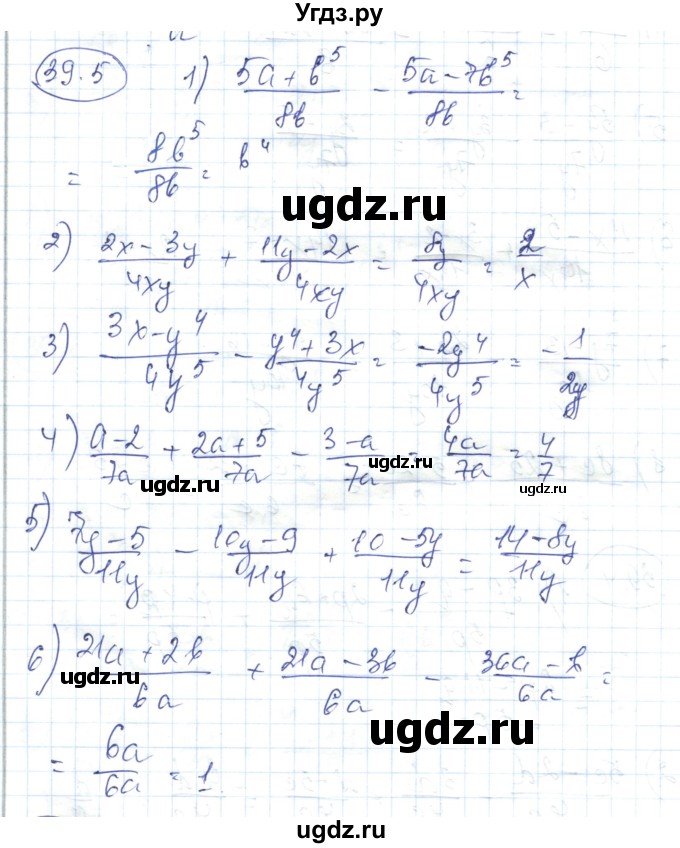 Угдз.ру
39.5 1) (5a + b^5)/(8b) - (5a - 7b^5)/(8b) =
= (8b^5)/(8b) = b^4
ugdz.ru
2) (2x - 3y)/(4xy) + (11y - 2x)/(4xy) = (8y)/(4xy) = 2/x
3) (3x - y^4)/(4y^5) - (y^4 + 3x)/(4y^5) = (-2y^4)/(4y^5) = -1/(2y)
4) (a - 2)/(7a) + (2a + 5)/(7a) - (3 - a)/(7a) = (4a)/(7a) = 4/7
ugdz.ru ugdz.ru
5) (7y - 5)/(11y) - (10y - 9)/(11y) + (10 - 5y)/(11y) = (14 - 8y)/(11y)
6) (21a + 2b)/(6a) + (21a - 3b)/(6a) - (36a - b)/(6a) =
ugdz.ru
= (6a)/(6a) = 1
ugdz.ru
ugdz.ru